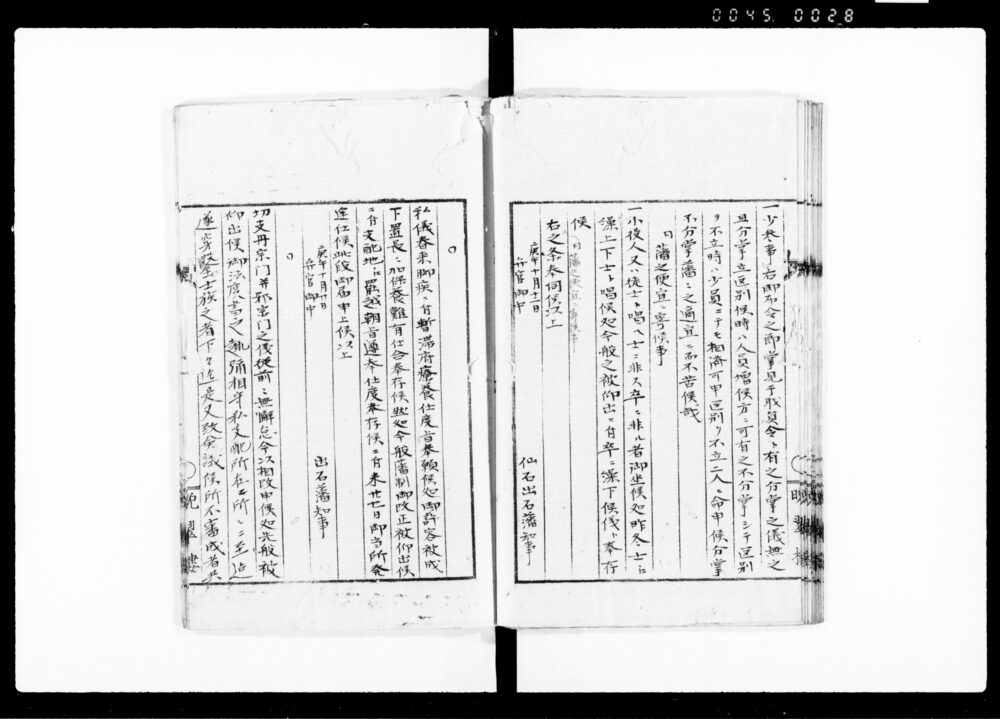 0045. 0028
一少参事ハ右即布令之節掌見于職員令ニ有之分掌之儀無之
且分掌立区別候時ハ人員増候方ニ可有之不分掌シテ区別
ヲ不立時ハ少員ニテモ相済可申区別ヲ不立二人ニ命申候分掌
不分掌藩ニ之適宜ニ而不苦候哉
同 藩之便宜ニ寄候事
一小役人又ハ徒士ト唱ヘ士ニ非ス卒ニ非ル者御坐候処昨冬士ニ
藻上下士ト唱候処今般之被仰出ニ付卒ニ藻下候儀ト奉存
候
同 藩之便宜ニ寄候事
右之条奉伺候以上
庚午十月十二日 仙石出石藩知事
弁官御中
〇
私儀春来脚疾ニ付暫滞府療養仕度旨奉願候処御許容被成
下置長ニ加保養難有仕合奉存候然処今般藩制御改正被仰出候
ニ付支配地ニ罷越朝旨遵奉仕度奉存候ニ付来廿一日御当所発
途仕候此段御届申上候以上
庚午十月 日 出石藩知事
弁官御中
〇
切支丹宗門并邪宗門之儀従前ニ無懈怠今以相改申候処先般被
仰出候御法度書之趣弥相守私支配所在ニ所ニニ至迄
遂穿鑿士族之者下々迄是又致会議候所不審成者共